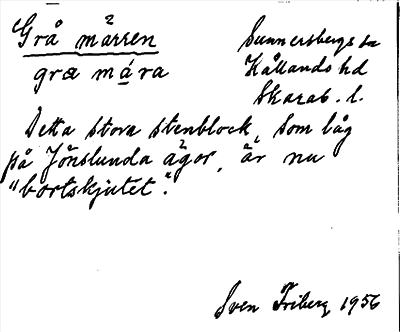 Grå märren
græ mára
Sunnersbergs sn
Kållands hd
Skarab. l.
Detta stora stenblock, som låg
på Jönslunda ägor, är nu
"bortskjutet".
Sven Friberg 1956